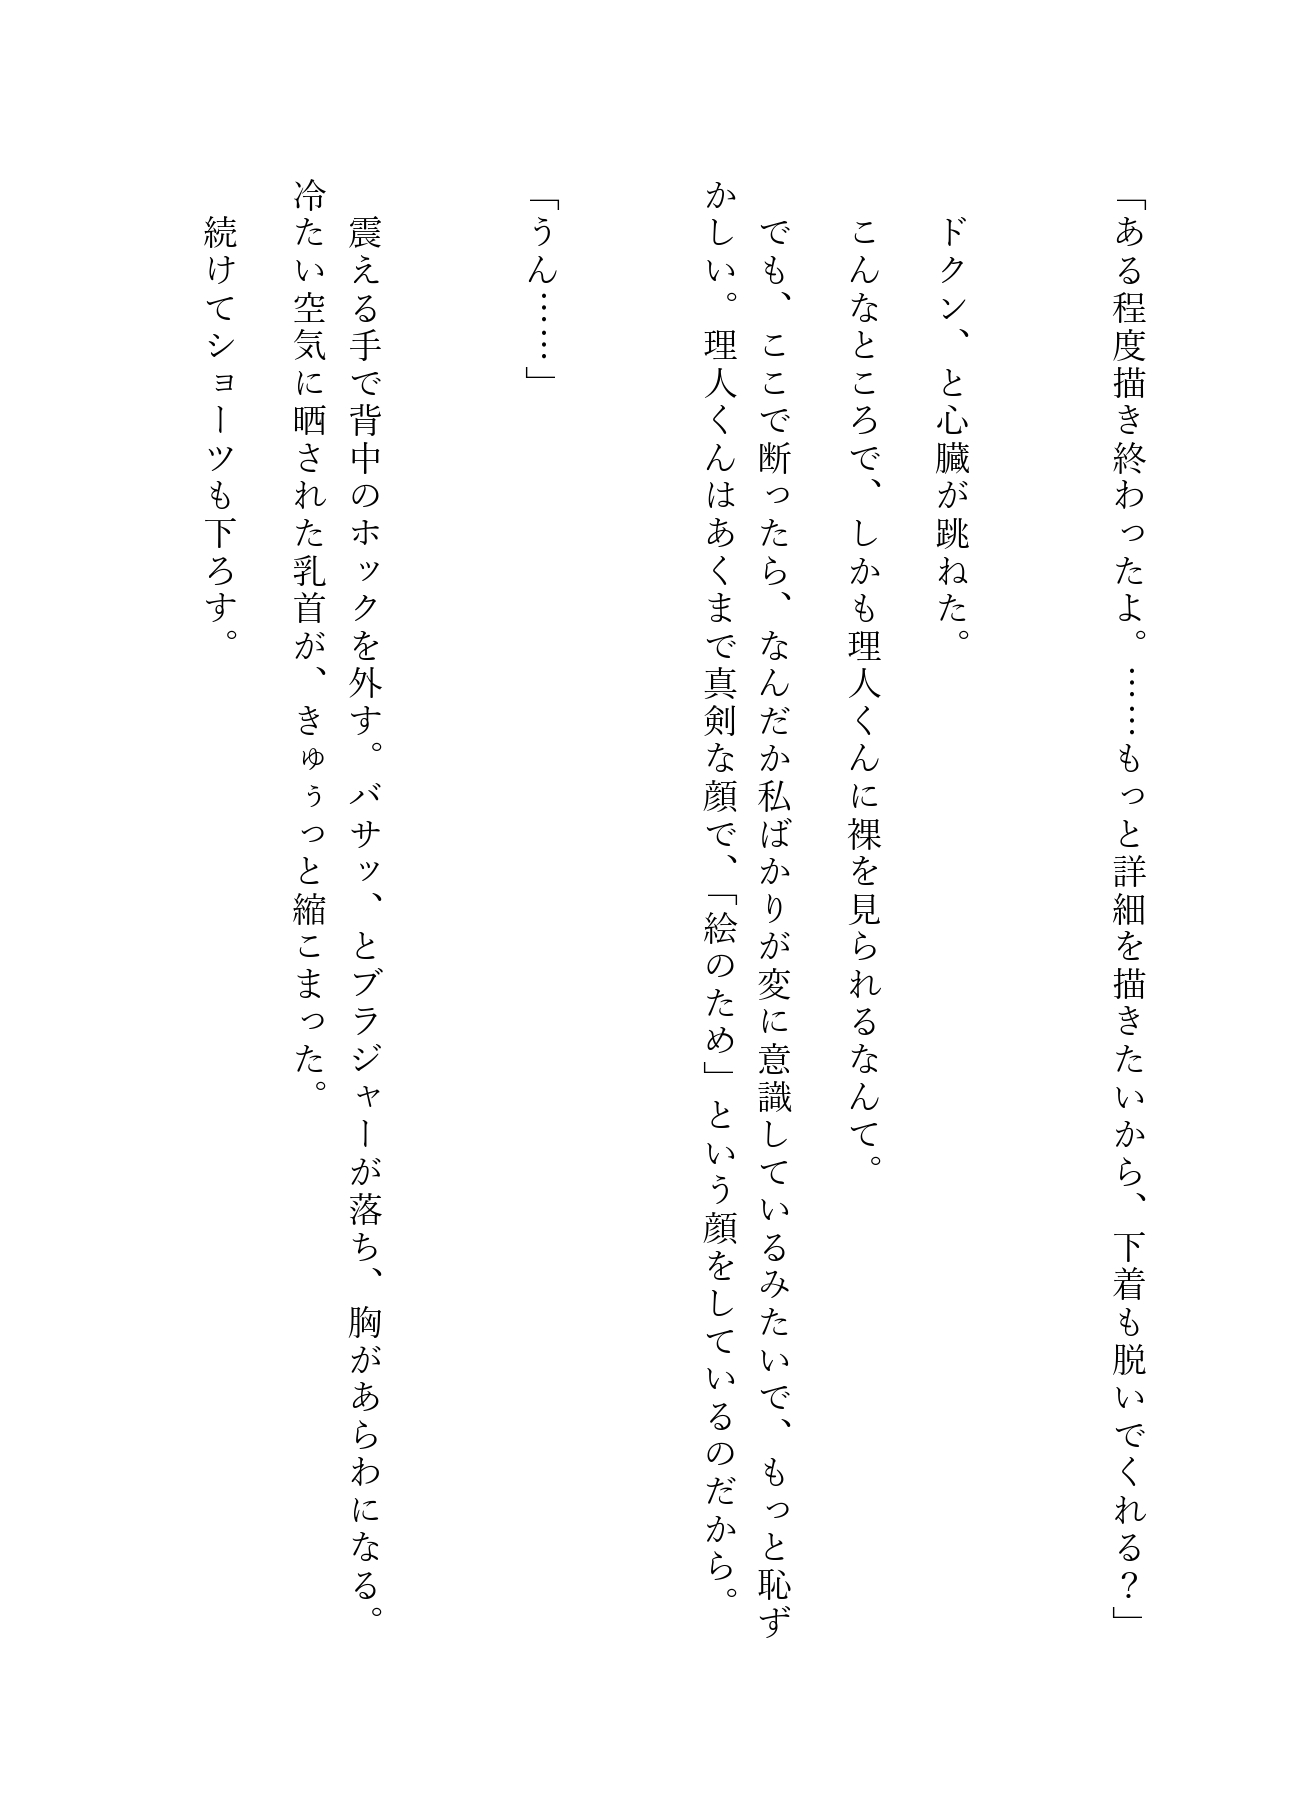 「ある程度描き終わったよ。……もっと詳細を描きたいから、下着も脱いでくれる？」
ドクン、と心臓が跳ねた。
こんなところで、しかも理人くんに裸を見られるなんて。
でも、ここで断ったら、なんだか私ばかりが変に意識しているみたいで、もっと恥ず
かしい。理人くんはあくまで真剣な顔で、「絵のため」という顔をしているのだから。
「うん……」
震える手で背中のホックを外す。バサッ、とブラジャーが落ち、胸があらわになる。
冷たい空気に晒された乳首が、きゅぅっと縮こまった。
続けてショーツも下ろす。